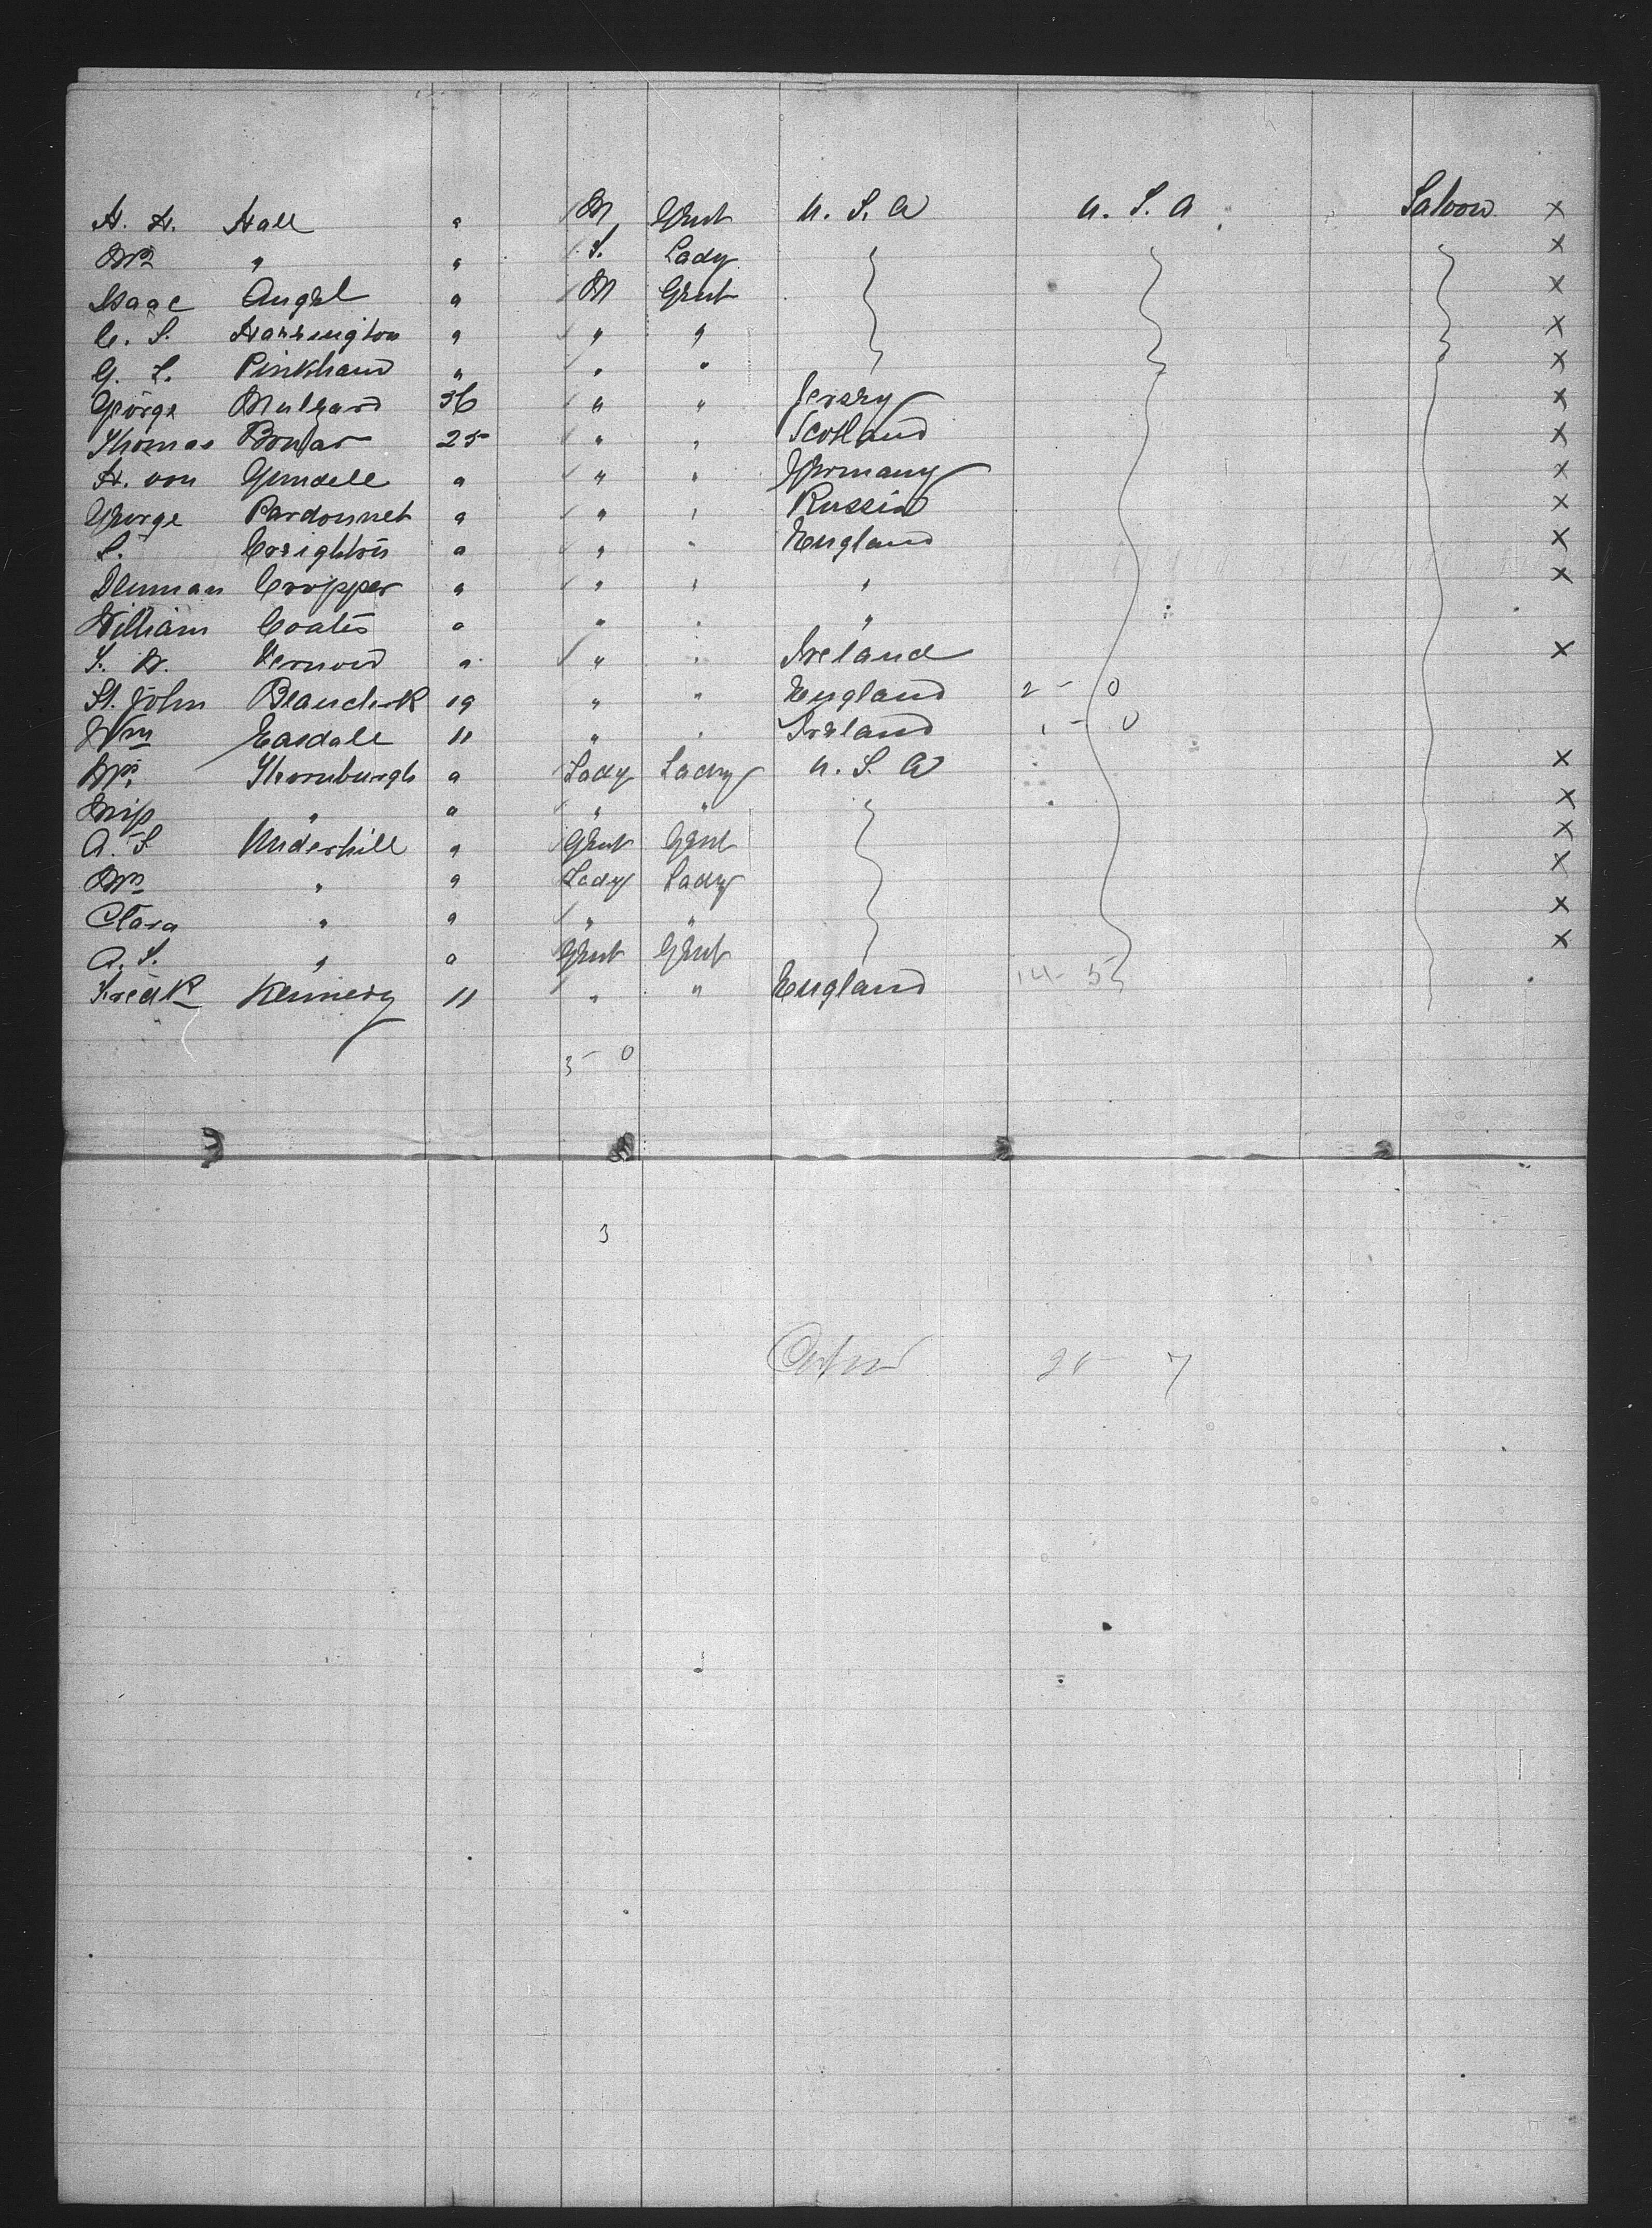 H. H. Hall a M Gent U. S. A U. S. A Saloon X
Mrs " " F. Lady X
Isaac Angel a M Gent X
C. S. Harrington a " " X
G. L. Pinkham " " " X
George 36 " " Jersey X
Thomas Bonar 25 " " Scotland X
H. von Gundell a " " Germany X
George Pardonnet a " " Russia X
S. Crighton a " " England X
Denman Cropper a " " " X
William Coates a " " "
Vernon a " " Ireland X
St. John 19 " " England 2 - 0
Wm Easdale 11 " " Ireland 1 - 0
Mrs Thornburgh a Lady Lady U. S. A X
Miss " a " " X
A. S. Underhill a Gent Gent X
Mrs " a Lady Lady X
Clara " a " " X
A. S. " a Gent Gent X
Fredk 11 " " England 14 - 5
3 - 0
3
7